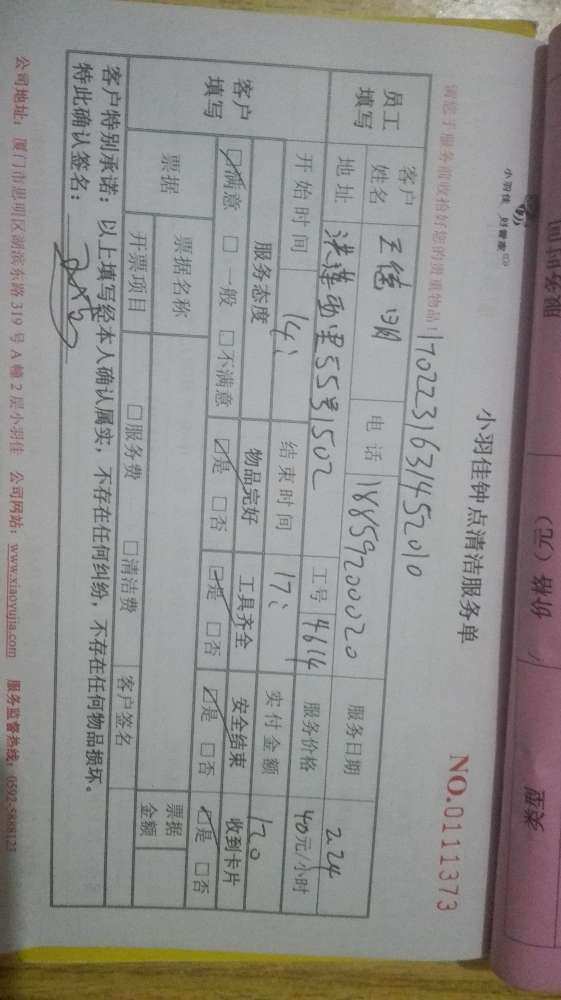 小羽佳 好管家
小羽佳钟点清洁服务单
NO.0111373
请您于服务前收拾好您的贵重物品!
1702231631452010
员工填写
客户姓名
电话 18859200020
服务日期 2.24
地址 洪莲西里55号1502
工号 4614
服务价格 40元/小时
开始时间 14:
结束时间 17:
实付金额 120
客户填写
服务态度 物品完好 工具齐全 安全结束 收到卡片
☑满意 □一般 □不满意 ☑是 □否 ☑是 □否 ☑是 □否 ☑是 □否
票据 票据名称 票据金额
开票项目 □服务费 □清洁费 客户签名
客户特别承诺:以上填写经本人确认属实,不存在任何纠纷,不存在任何物品损坏。
特此确认签名:
公司地址:厦门市思明区湖滨东路319号A幢2层小羽佳 公司网站:www.xiaoyujia.com 服务监督热线:0592-5888121